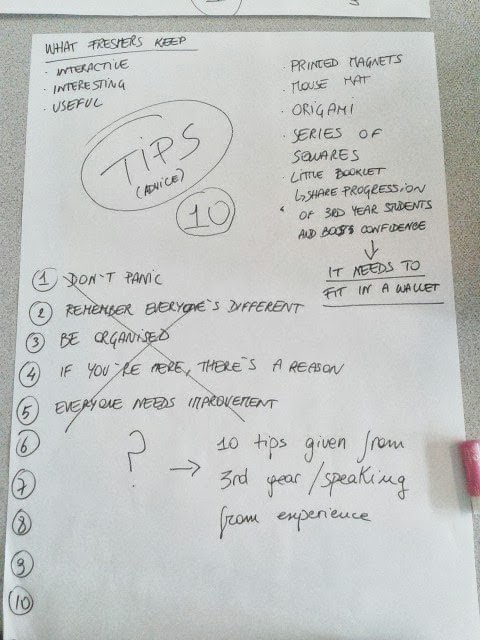 WHAT FRESHERS KEEP
· INTERACTIVE
· INTERESTING
· USEFUL
TIPS
(ADVICE)
10
· PRINTED MAGNETS
· MOUSE MAT
· ORIGAMI
· SERIES OF
SQUARES
· LITTLE BOOKLET
↳ SHARE PROGRESSION
OF 3RD YEAR STUDENTS
AND CONFIDENCE
↓
IT NEEDS TO
FIT IN A WALLET
1 DON'T PANIC
2 REMEMBER EVERYONE'S DIFFERENT
3 BE ORGANISED
4 IF YOU'RE HERE, THERE'S A REASON
5 EVERYONE NEEDS IMPROVEMENT
6
7
8
9
10
? → 10 tips given from
3rd year / speaking
from experience